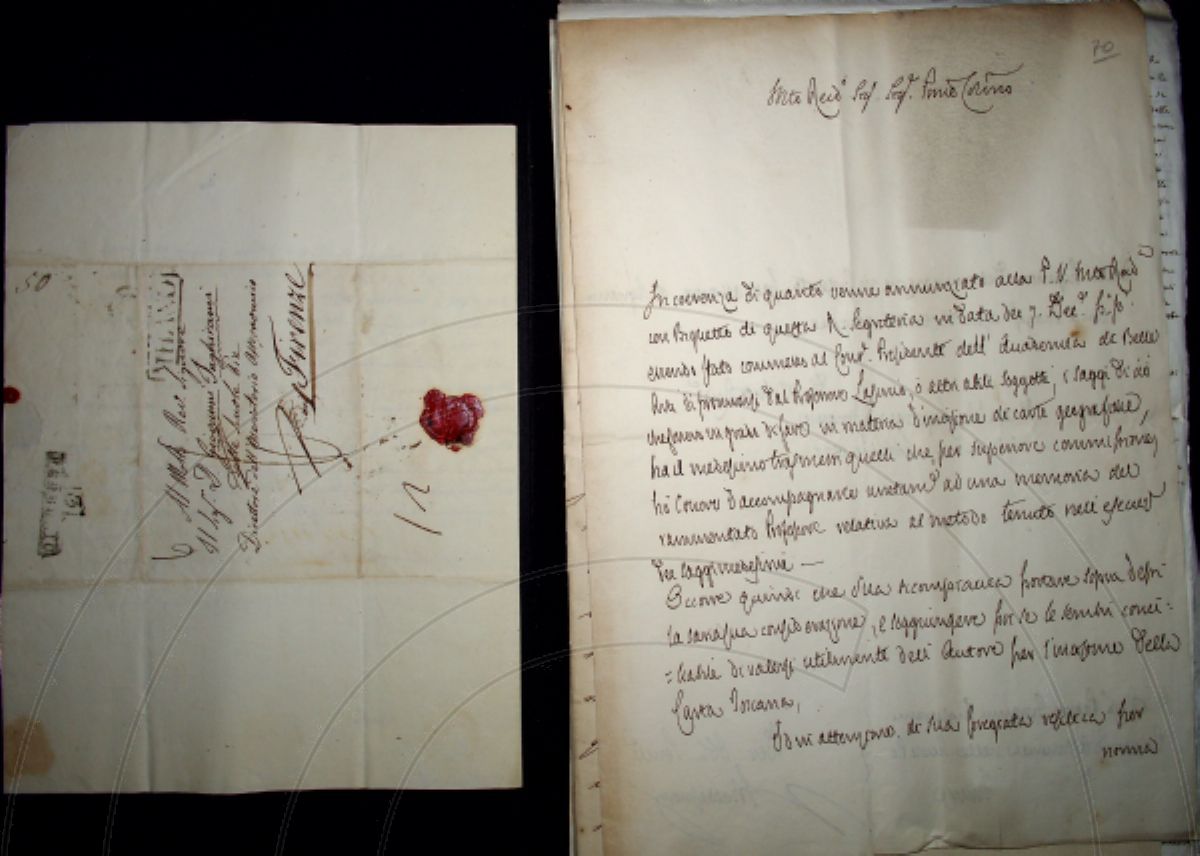 50
MILANO
Al Molto Rev. Signore
Il Sig. D. Giovanni Inghirami
delle Scuole Pie
Direttore dell'Osservatorio Astronomico
Firenze
70
Mto Revd.º Sig. Sig. Pne Colmo
In coerenza di quanto venne annunziato alla P. V. Mto Revd
con Biglietto di questa R. Segreteria in data dei 7. Dec.e
essendo stato commesso al Presidente dell' Accademia di Belle
Arti di dal Professore Lasinio, o altri abili soggetti, i saggi di ciò
in grado di fare in materia d'incisione di carte geografiche,
ha il medesimo trasmessi quelli che per superiore commissione
hò l'onore d'accompagnarle unitam.e ad una memoria del
rammentato Professore relativa al metodo tenuto nell'
dei saggi medesimi —
Occorre quindi che Ella si compiaccia portare sopra
la sua considerazione, e soggiungere se le sembri conci=
=liabile di valersi utilmente dell' Autore per l'incisione della
Carta Toscana,
Ed in attenzione di sua pregiata replica per
norma